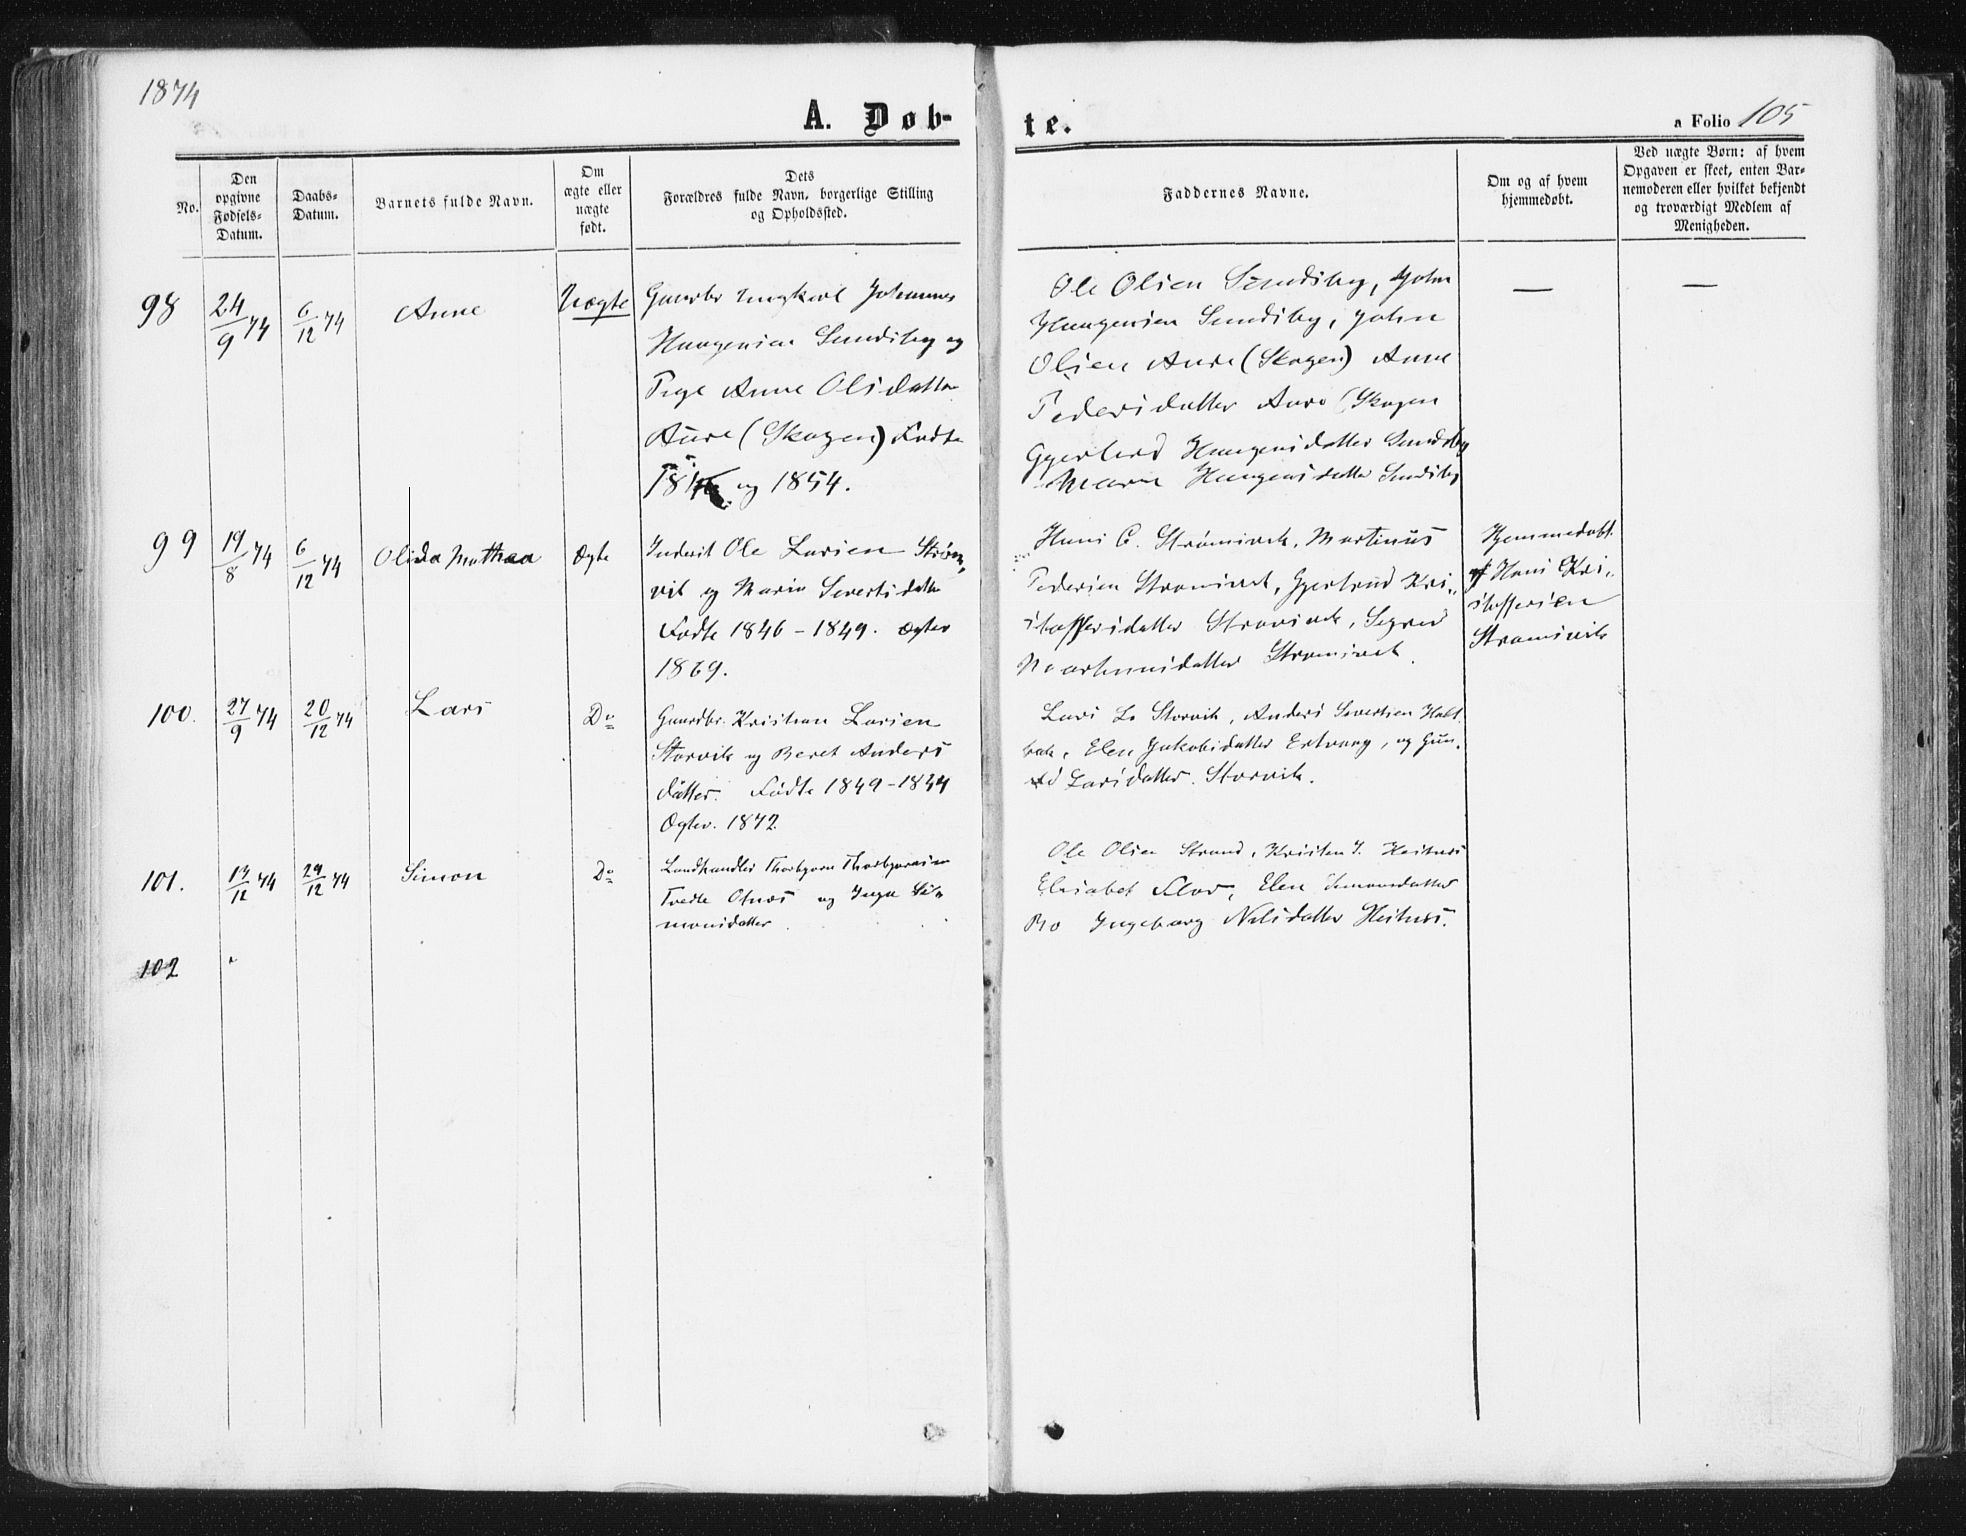 1874
A. Døb-
te.
a Folio 105
No.
Den
opgivne
Fødsels-
Datum.
Daabs-
Datum.
Barnets fulde Navn.
Om
ægte eller
uægte
født.
Dets
Forældres fulde Navn, borgerlige Stilling
og Opholdssted.
Faddernes Navne.
Om og af hvem
hjemmedøbt.
Ved uægte Børn: af hvem
Opgaven er skeet, enten Bar-
nemoderen eller hvilket bekjendt
og troværdigt Medlem af
Menigheden.
98
24/9 74
6/12 74
Anne
Uægte
Gaardbr Ungkarl Johannes
Haagensen Sundsby og
Pige Anne Olsdatter
Aure (Skogen) Fødte
og 1854.
Ole Olsen Sundsby, John
Haagensen Sundsby, John
Olsen Aure (Skogen) Anne
Pedersdatter Aure (Skogen
Haagensdatter Sundsby
Maren Haagensdatter Sundsby
—
—
99
19/8 74
6/12 74
Olida Mathea
Ægte
Inderst Ole Larsen Strøms-
vik og Maria Sivertsdatter
Fødte 1846 - 1849. Ægtev
1869.
Hans C. Strømsvik, Martinus
Pedersen Strømsvik, Gjertrud Kri-
stoffersdatter Strømsvik, Sigrid
Strømsvik.
Hjemmedøbt
af Hans Kri-
stoffersen
Strømsvik
100.
27/9 74
20/12 74
Lars
Do
Gaardbr. Kristian Larsen
Storvik og Beret Anders
datter. Fødte 1849 - 1844
Ægtev. 1872.
Lars L. Storvik, Anders Sivertsen Holt
bak, Elen Jakobsdatter Ertvaag, og Gun-
Larsdatter Storvik.
101.
24/12 74
Simon
Do
Landhandler Thorbjørn Thorbjørnsen
Tvedte Otnæs og Inga Si-
monsdatter
Ole Olsen Strand, Kristen J. Heitnes
Elisabet Flor, Elen Simonsdatter
Bo Ingeborg Nilsdatter Heitnes.
102